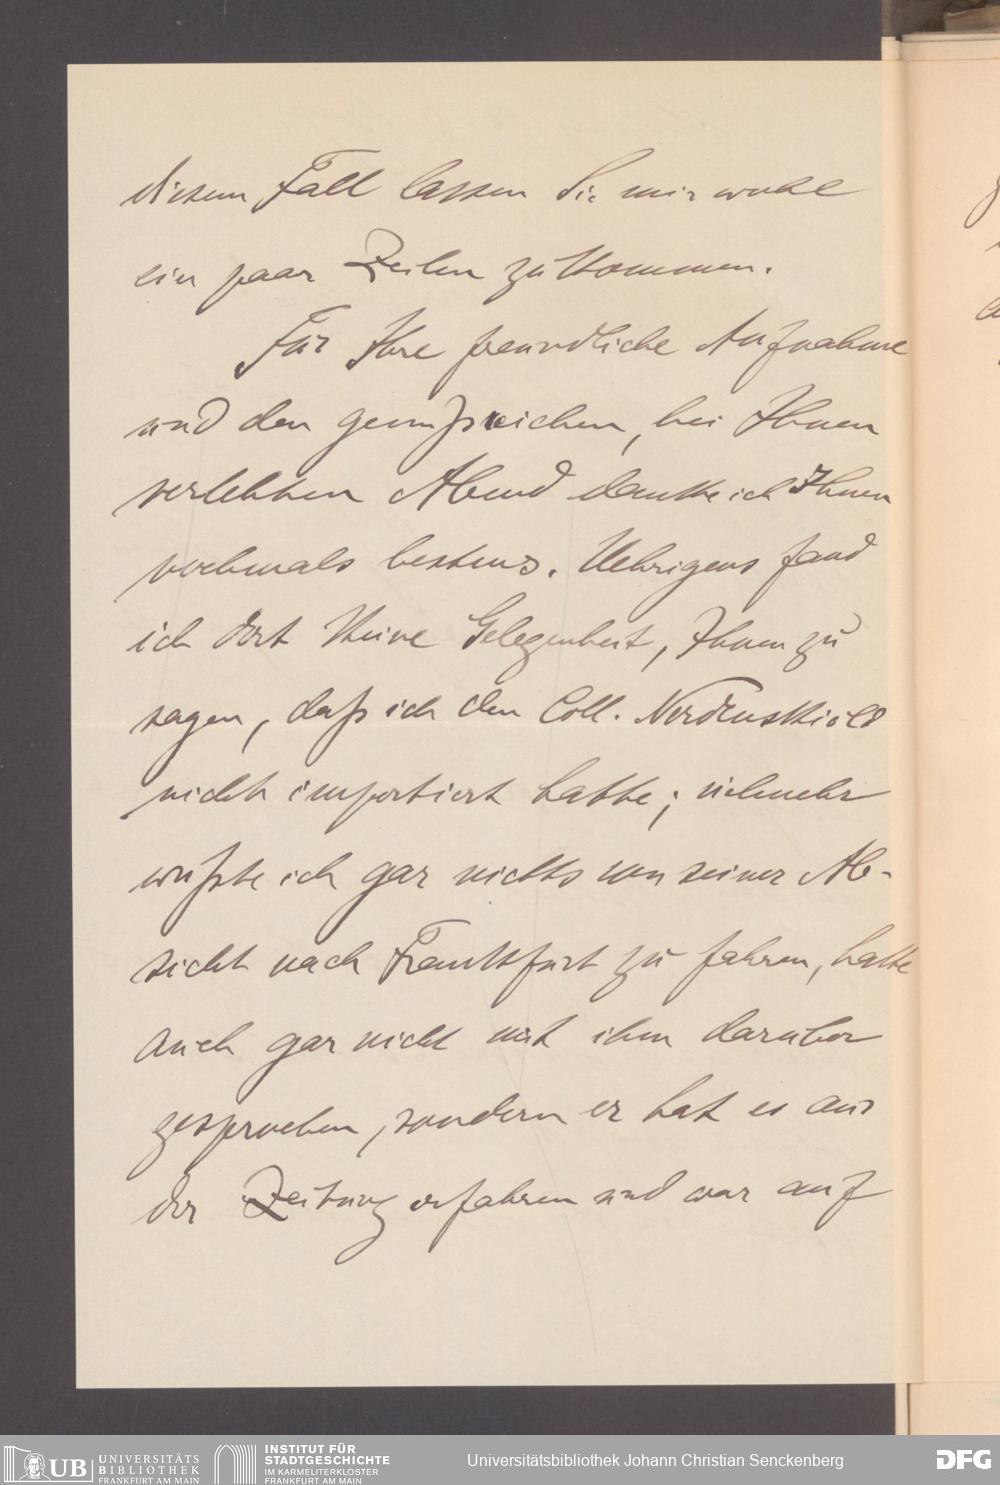 diesem Fall lassen Sie mir wohl
ein paar Zeilen zukommen.
Für Ihre freundliche Aufnahme
und den genußreichen, bei Ihnen
verlebten Abend danke ich Ihnen
nochmals bestens. Uebrigens fand
ich dort keine Gelegenheit, Ihnen zu
sagen, daß ich den Coll. Nordenskiöld
nicht importiert hatte; vielmehr
wußte ich gar nichts von seiner Ab-
sicht nach Frankfurt zu fahren, hatte
auch gar nicht mit ihm darüber
gesprochen, sondern er hat es aus
der Zeitung erfahren und war auf
UB UNIVERSITÄTS
BIBLIOTHEK
FRANKFURT AM MAIN
INSTITUT FÜR
STADTGESCHICHTE
IM KARMELITERKLOSTER
FRANKFURT AM MAIN
Universitätsbibliothek Johann Christian Senckenberg
DFG